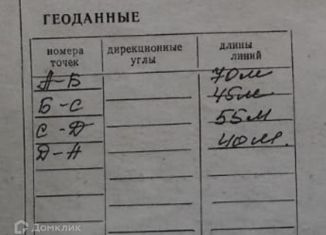 ГЕОДАННЫЕ
номера точек дирекционные углы длины линий
А-Б 70м
Б-С 45м
С-Д 55м
Д-А 40м.
Домклик